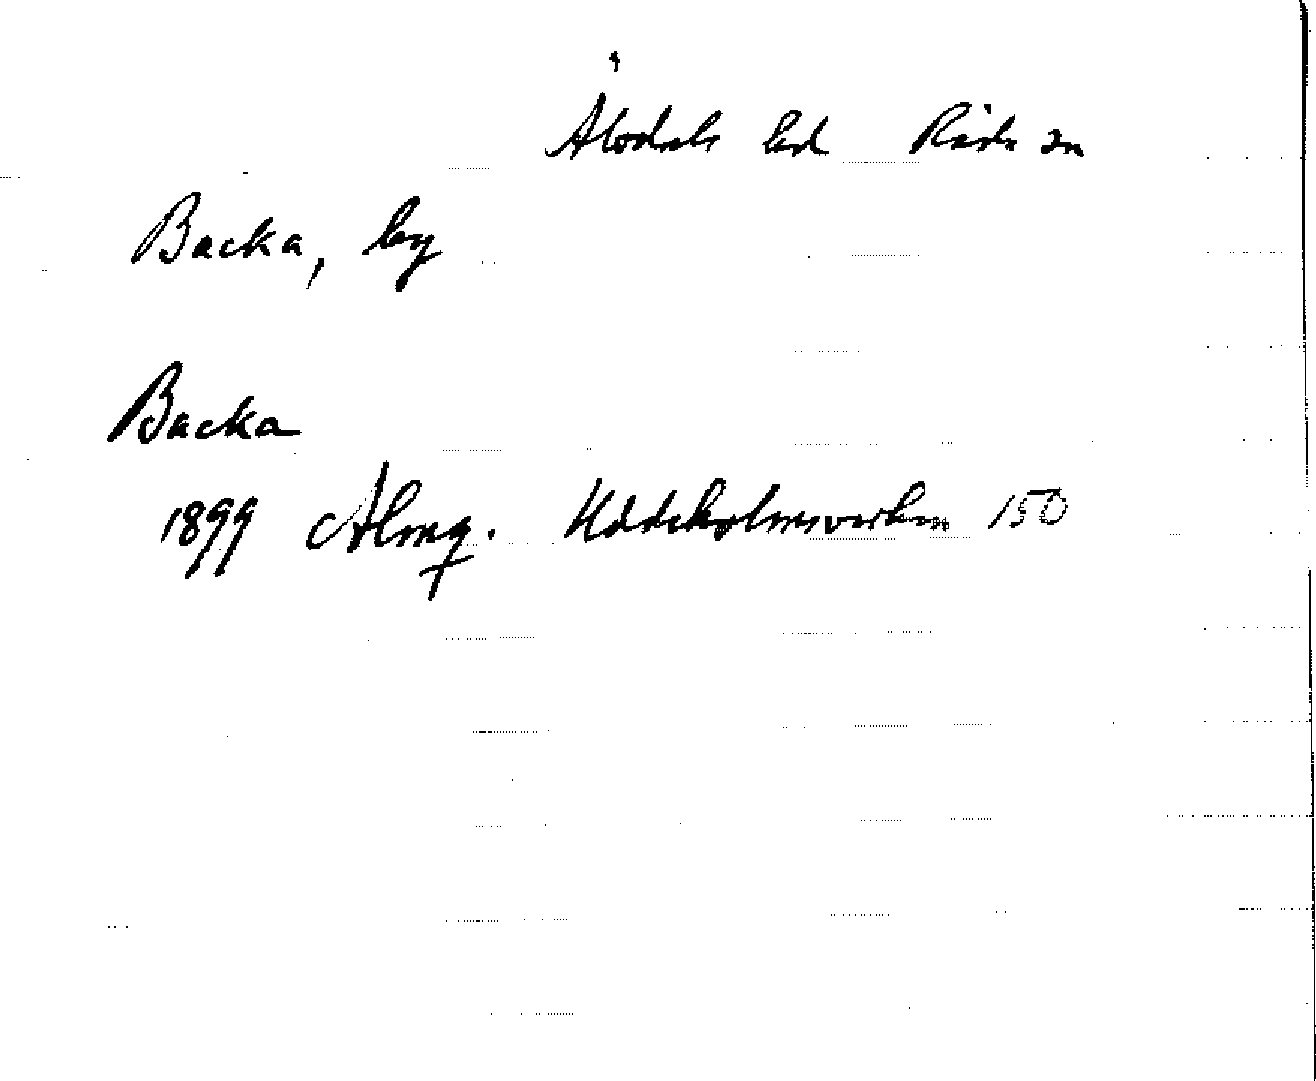 Älvdals hd Råda sn
Backa, by
Backa
1899 Almq. Uddeholmsverken 150